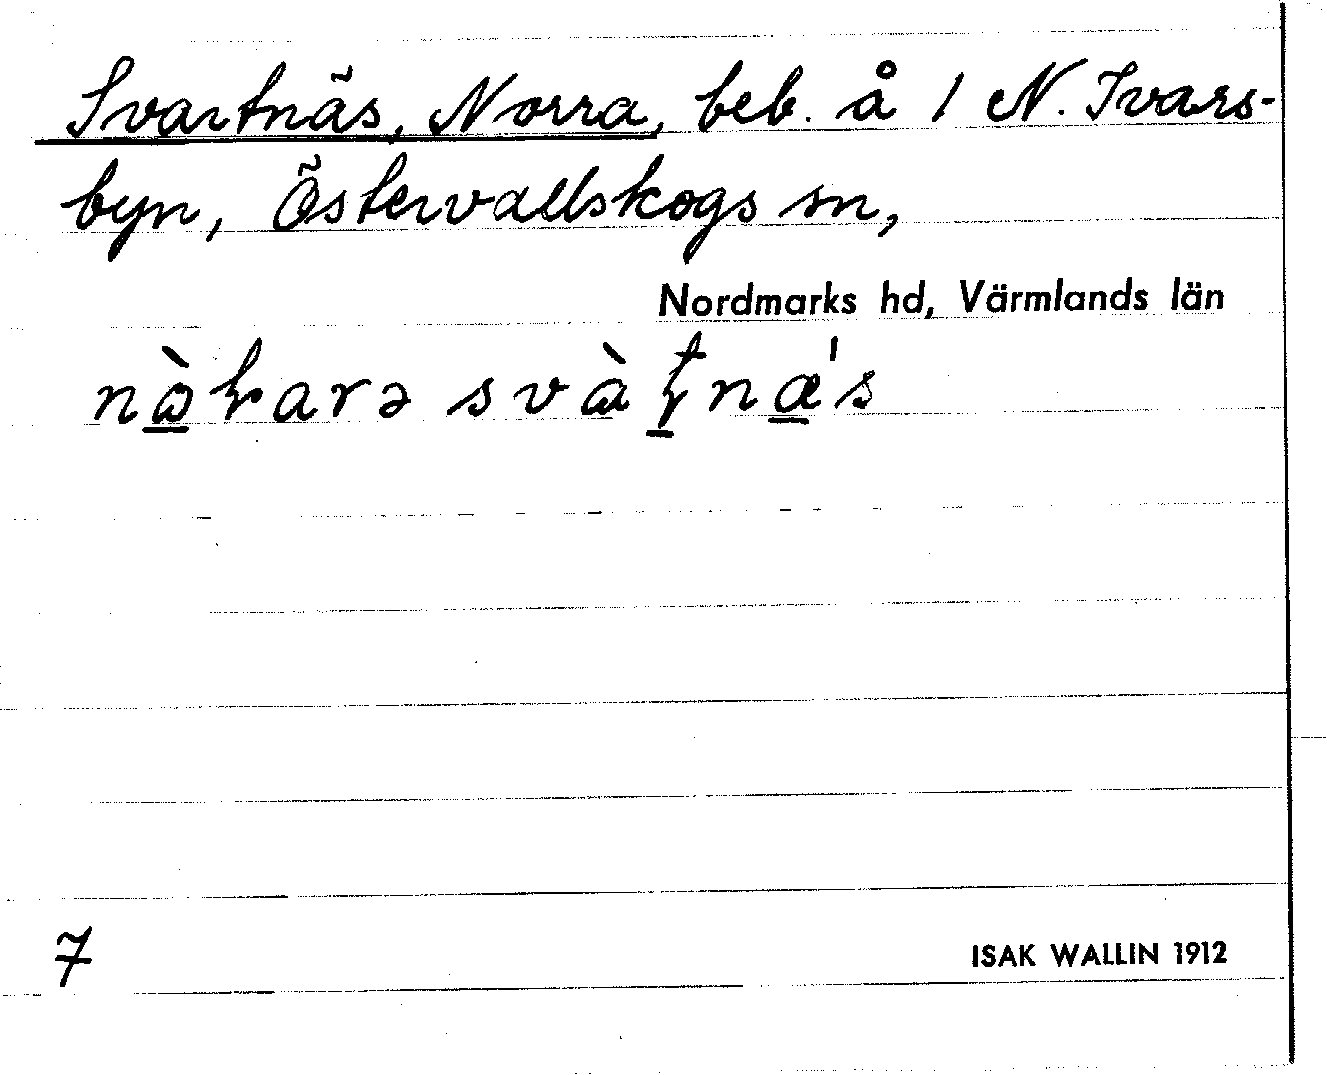 Svartnäs, Norra, beb. å 1 N. Ivars-
byn, Östervallskogs sn,
Nordmarks hd, Värmlands län
7
ISAK WALLIN 1912